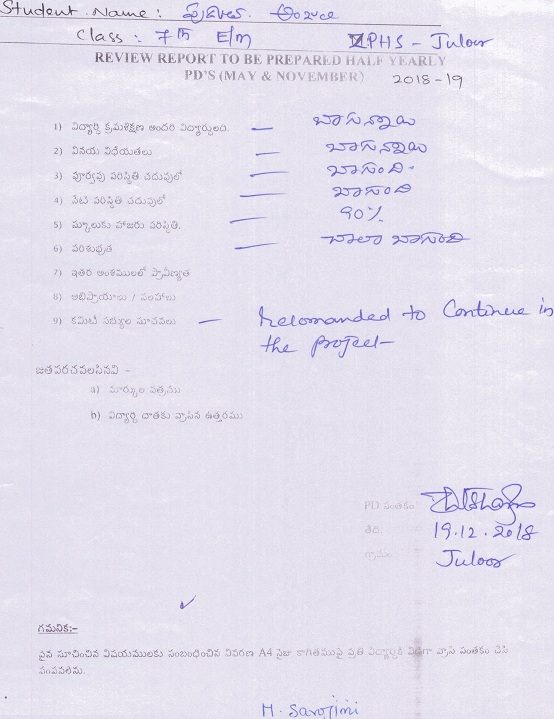 Student Name :
Class : 7th E/m ZPHS - Juloor
REVIEW REPORT TO BE PREPARED HALF YEARLY
PD'S (MAY & NOVEMBER) 2018-19
1) విద్యార్థి క్రమశిక్షణ అందరి విద్యార్థులది. — బాగున్నాయి
2) వినయ విధేయతలు — బాగున్నాయి
3) పూర్వపు పరిస్థితి చదువులో — బాగుంది.
4) నేటి పరిస్థితి చదువులో — బాగుంది
5) స్కూలుకు హాజరు పరిస్థితి. — 90%
6) పరిశుభ్రత — చాలా బాగుంది
7) ఇతర అంశములలో ప్రావీణ్యత
8) అభిప్రాయాలు / సలహాలు
9) కమిటి సభ్యుల సూచనలు — Recomanded to Continue in
the project-
జతపరచవలసినవి :-
a) మార్కుల పత్రము
b) విద్యార్థి దాతకు వ్రాసిన ఉత్తరము
PD సంతకం
తేది. 19.12.2018
గ్రామం Juloor
గమనిక:-
పైన సూచించిన విషయములకు సంబంధించిన వివరణ A4 సైజు కాగితముపై ప్రతి విద్యార్థికి విడిగా వ్రాసి సంతకం చేసి
పంపవలెను.
M. Sarojini